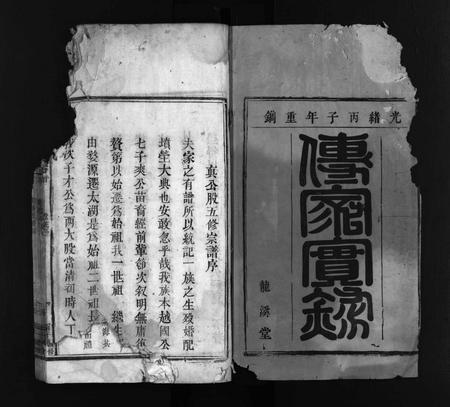 光緒丙子年重鐫
傳家寶錄
龍溪堂
真公股五修宗譜序
夫家之有譜所以統記一族之生歿婚配
墳塋大典也安敢忽乎哉我族本越國公
七子爽公苗裔經前輩敘次敘明無庸復
贅第以始遷爲始祖我一世祖 諱生
由婺源遷太湖是爲始祖二世祖長
次子才公爲兩大股當清初時人丁